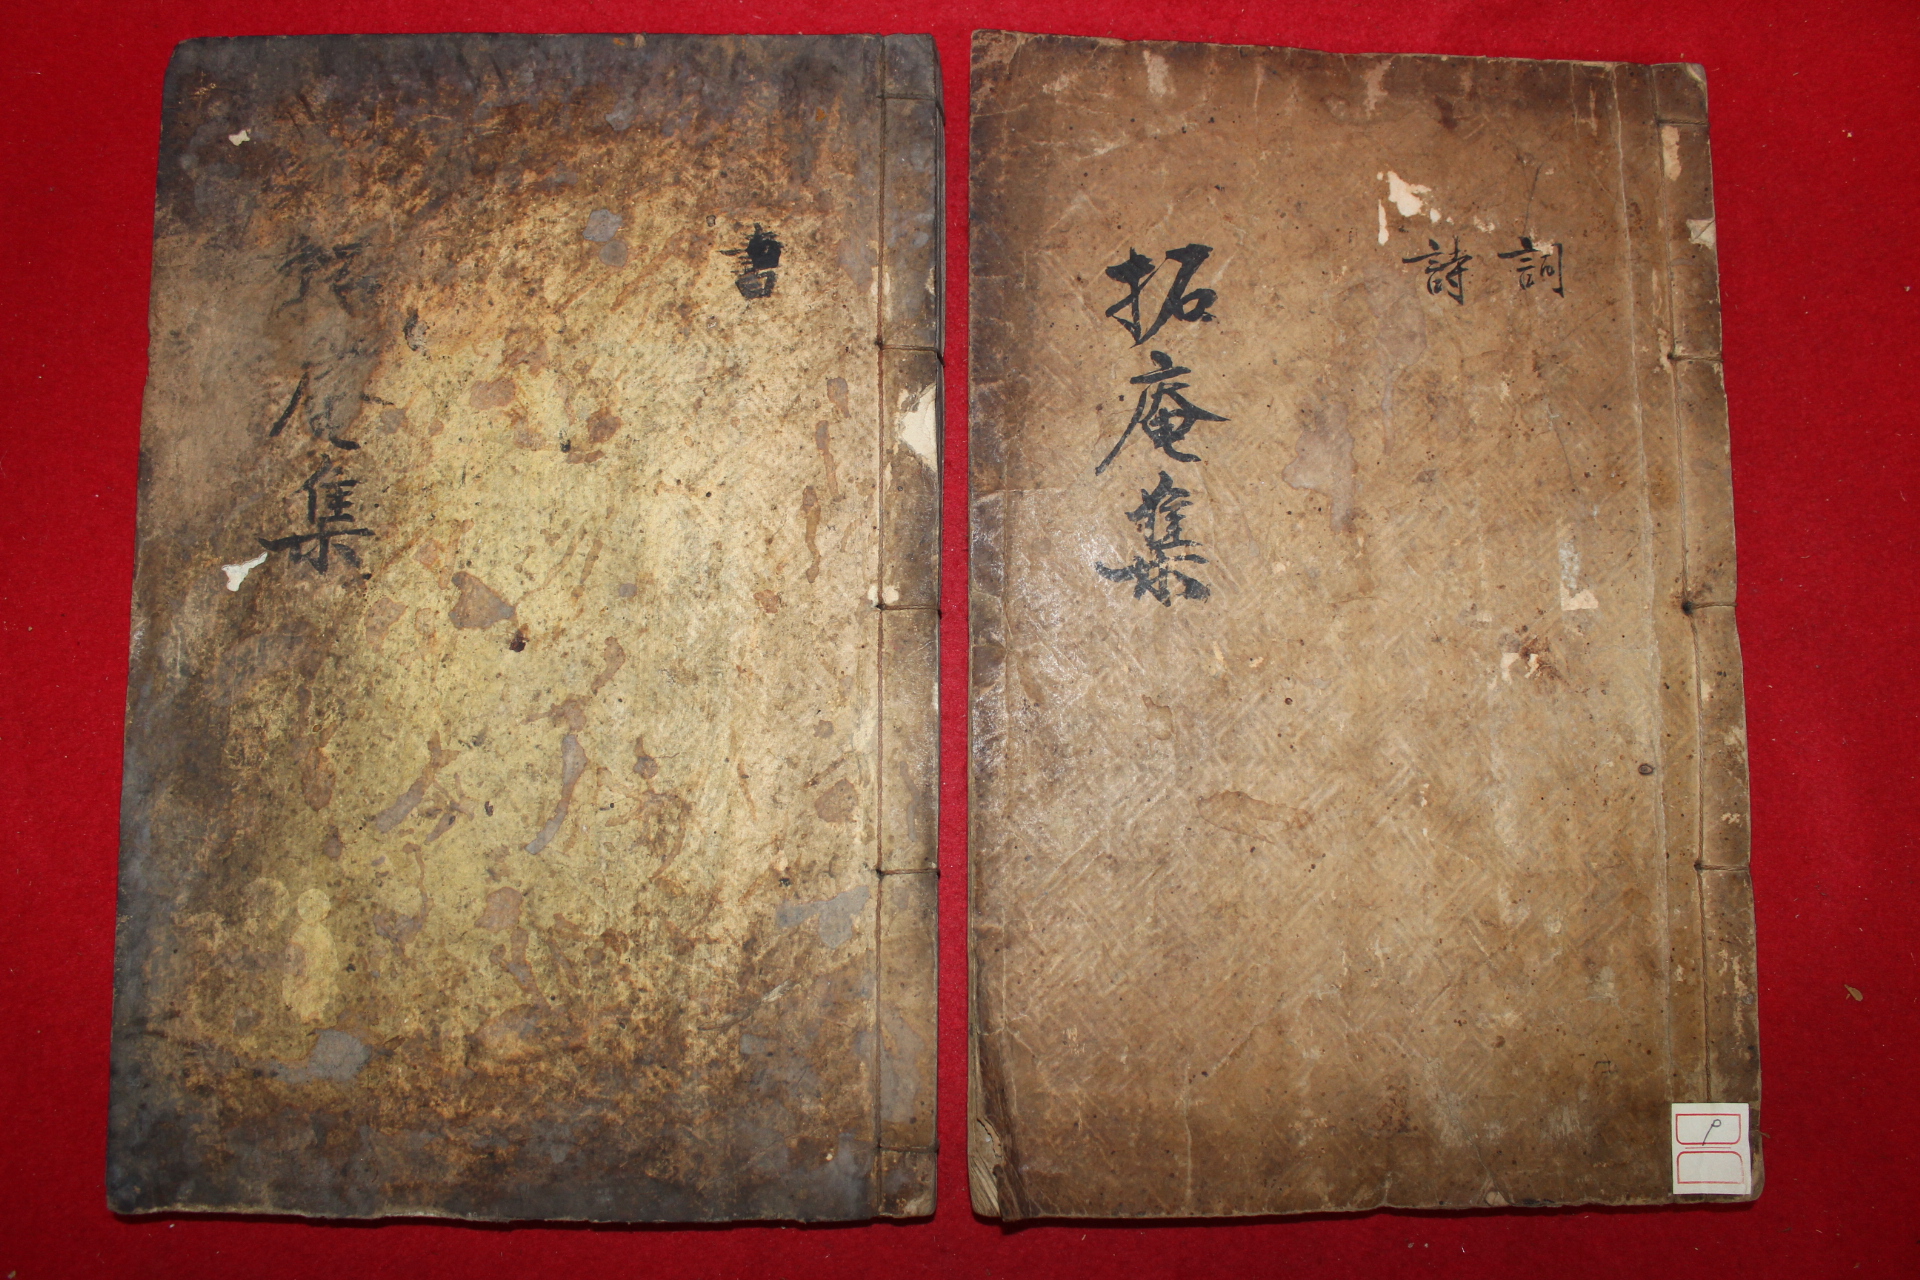 詞
詩
拓庵集
書
庵集
9